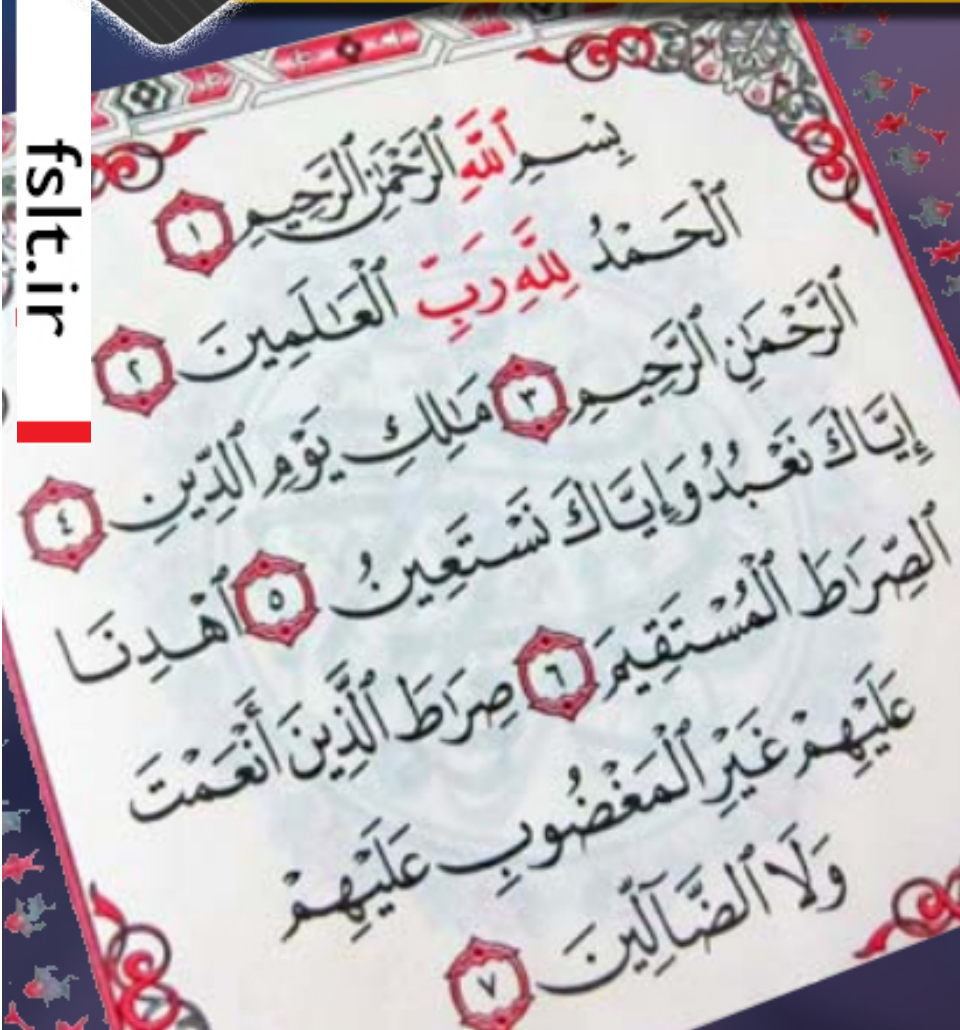 fslt.ir
بِسْمِ ٱللَّهِ ٱلرَّحْمَٰنِ ٱلرَّحِيمِ ١
ٱلْحَمْدُ لِلَّهِ رَبِّ ٱلْعَـٰلَمِينَ ٢
ٱلرَّحْمَٰنِ ٱلرَّحِيمِ ٣ مَـٰلِكِ يَوْمِ ٱلدِّينِ ٤
إِيَّاكَ نَعْبُدُ وَإِيَّاكَ نَسْتَعِينُ ٥ ٱهْدِنَا
ٱلصِّرَٰطَ ٱلْمُسْتَقِيمَ ٦ صِرَٰطَ ٱلَّذِينَ أَنْعَمْتَ
عَلَيْهِمْ غَيْرِ ٱلْمَغْضُوبِ عَلَيْهِمْ
وَلَا ٱلضَّآلِّينَ ٧